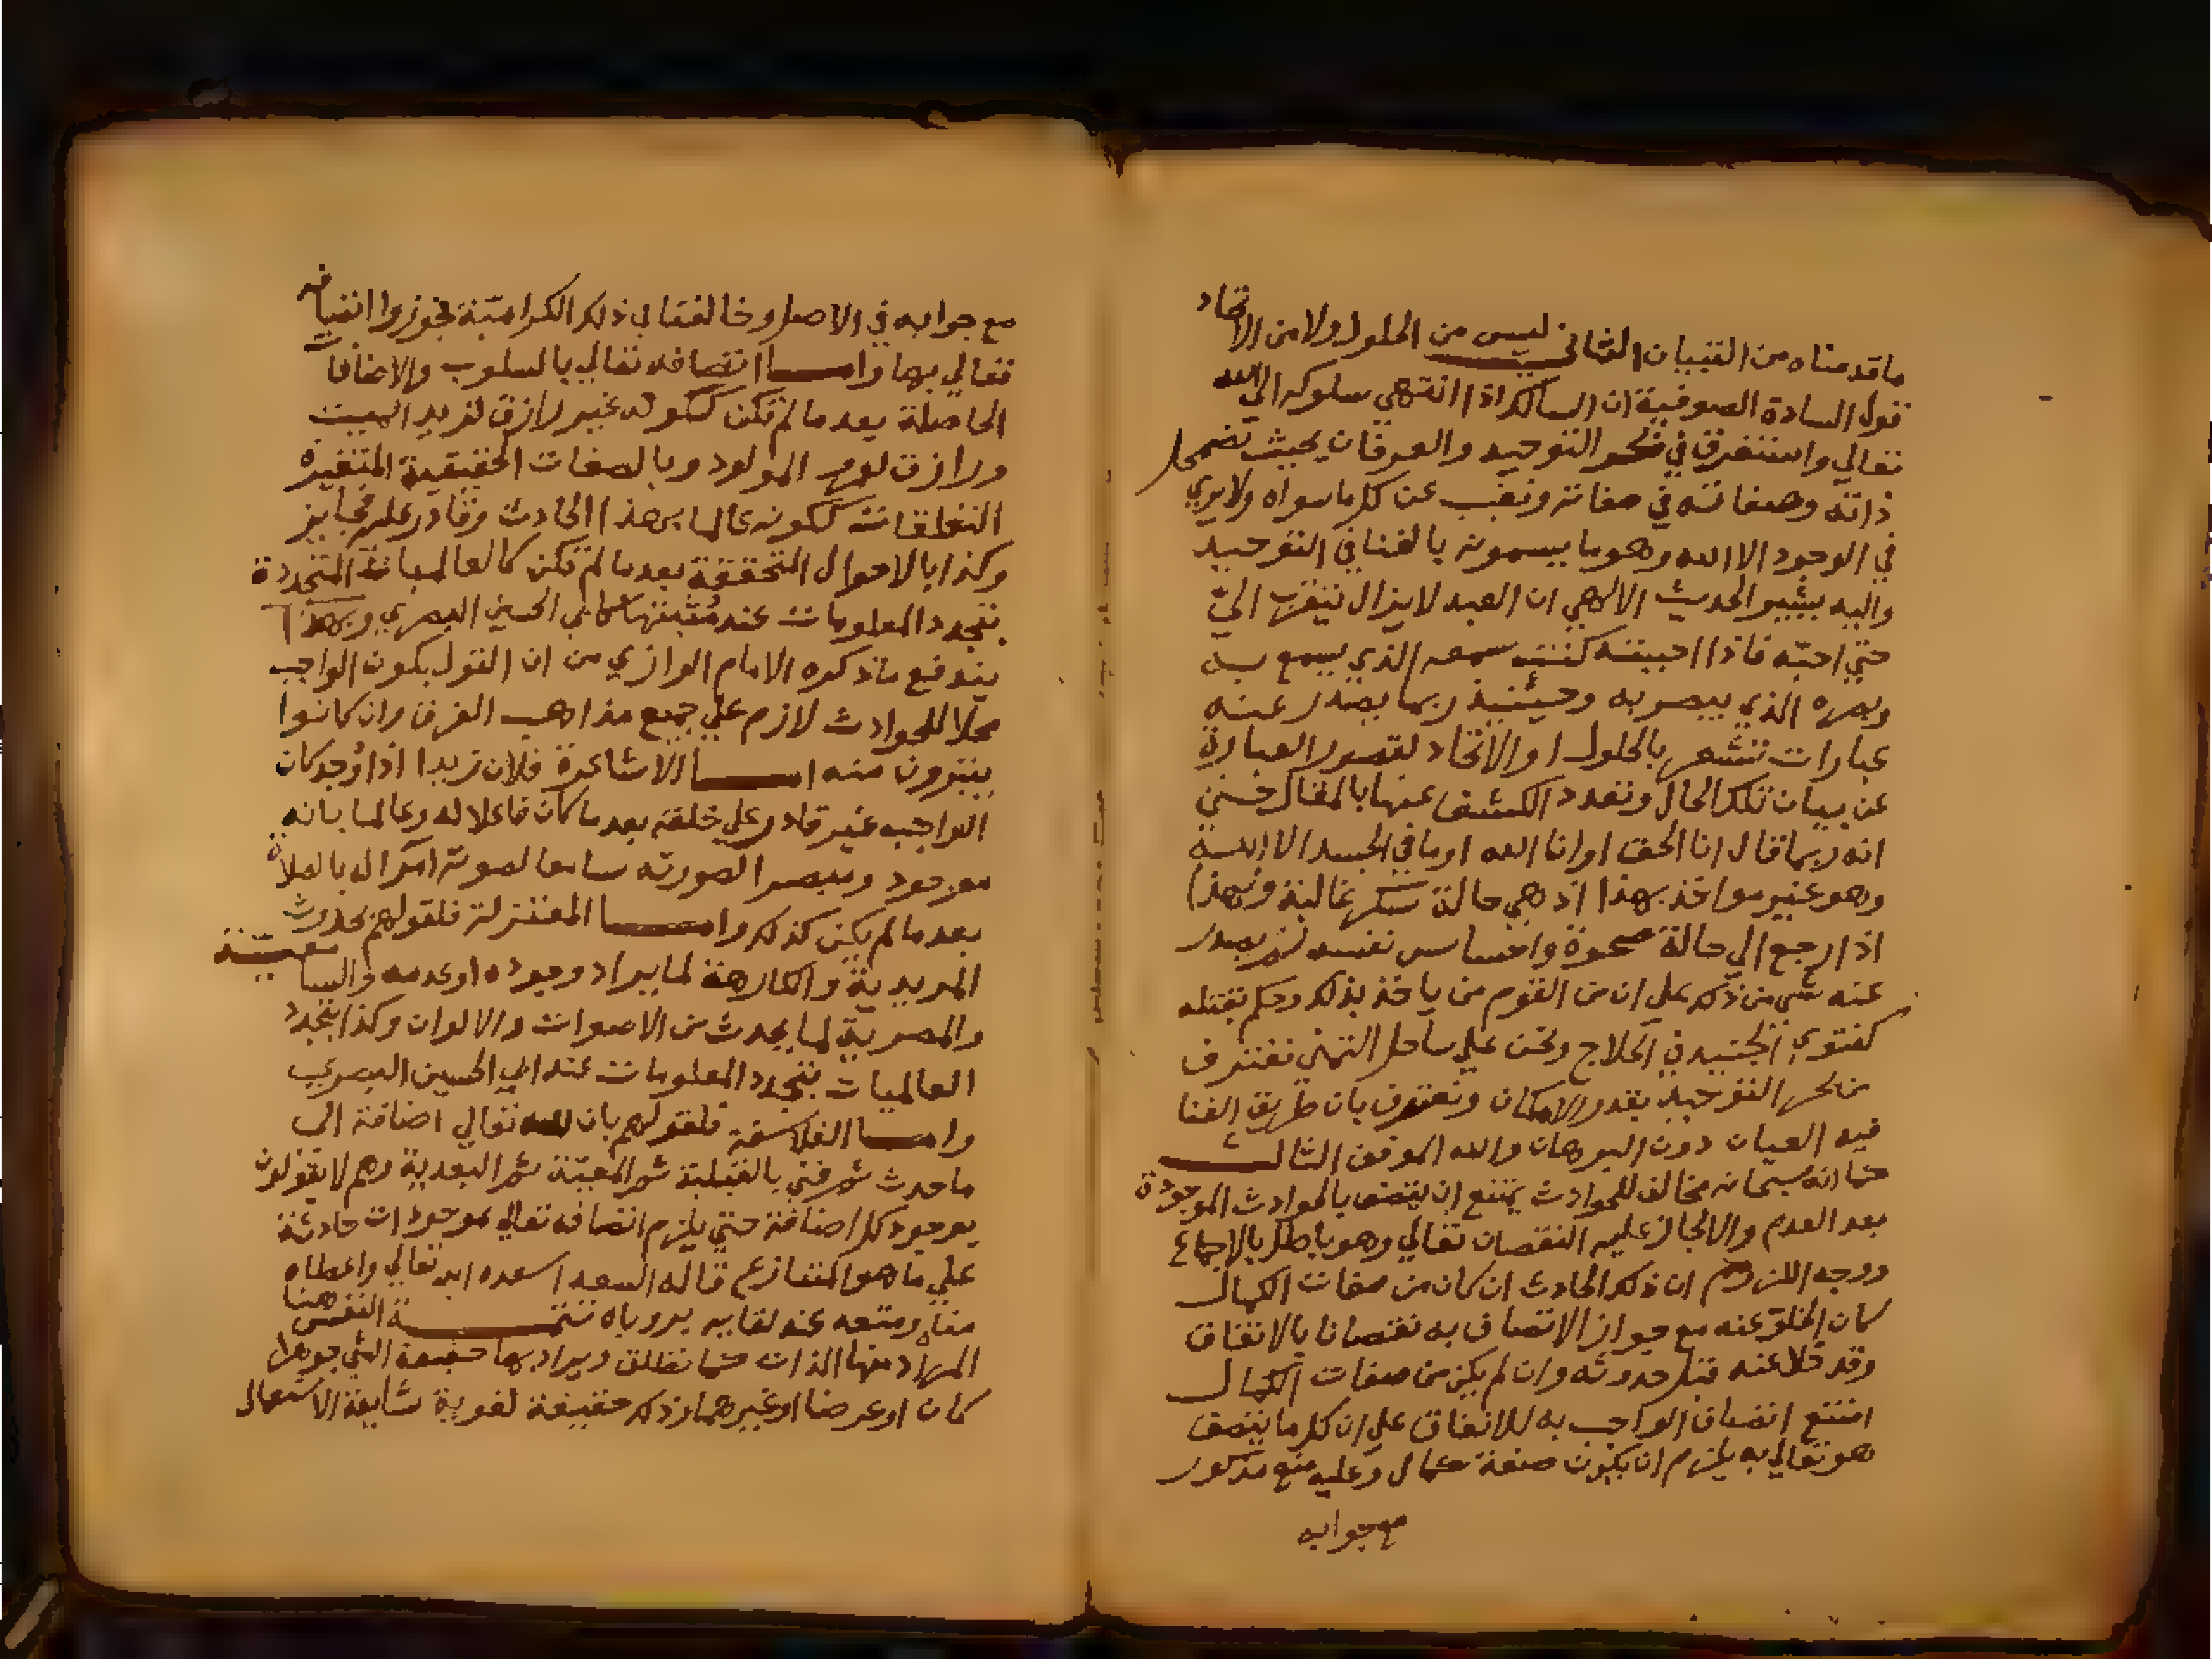 ما قدمناه من التبيان الثاني ليس من الحلول ولا من الاتحاد
قول السادة الصوفية ان السالك اذا انتهي سلوكه الي الله
تعالي واستغرق في بحر التوحيد والعرفان بحيث تضمحل
ذاته وصفاته في صفاته ونغيب عن كل ما سواه ولا يري
في الوجود الا الله وهو ما يسمونه بالفنا في التوحيد
واليه يشير الحديث الالهي ان العبد لا يزال يتقرب الي
حتي احبّه فاذا احببته كنت سمعه الذي يسمع به
وبصره الذي يبصر به وحينئيذ ربما يصدر عنه
عبارات تشعر بالحلول او الاتحاد لقصور العبارة
عن بيان تلك الحال وتعدد الكشف عنها بالمقال حتي
انه ربما قال انا الحق او انا الله او ما في الجسد الا الله
وهو غير مواخذ بهذا اذ هي حالة سكر غالبة ولهذا
اذا رجع الي حالة صحوة واحساس نفسه لم يصدر
عنه شي من ذلك علي ان من القوم من ياخذ بذلك وحكم بقتله
كفتوي الجنيد في الحلاج ونحن علي ساحل التمني نغترف
من بحر التوحيد بقدر الامكان ونعترف بان طريق الفنا
فيه العيان دون البرهان والله الموفق الثالث
كما انه سبحانه مخالف للحوادث يمتنع ان يتصف بالحوادث الموجودة
بعد العدم والا لجاز عليه النقصان تعالي وهو باطل بالاجماع
ووجه اللزوم ان ذلك الحادث ان كان من صفات الكمال
كان الخلو عنه مع جواز الاتصاف به نقصانا بالاتفاق
وقد خلا عنه قبل حدوثه وان لم يكن من صفات الكمال
امتنع اتصاف الواجب به للاتفاق علي ان كل ما يتصف
هو تعالي به يلزم ان يكون صفة كمال وعليه منع مذكور
مع جوابه
مع جوابه في الاصل وخالفنا في ذلك الكراميّة فجوزوا اتصافه
تعالي بها واما اتصافه تعالي بالسلوب والاضافات
الحاصلة بعد ما لم تكن ككونه غير رازق لزيد الميت
ورازق لعمرو المولود وبالصفات الحقيقية المتغيرة
التعلقات ككونه عالما بهذا الحادث وقادر عليه فجايز
وكذا بالاحوال المتحققة بعد ما لم تكن كالعالميات المتجددة
بتجدد المعلومات عند مثبتها كابي الحسين البصري وبهذا
يندفع ما ذكره الامام الرازي من ان القول بكون الواجب
محلا للحوادث لازم علي جميع مذاهب الفرق وان كانوا
يتبرون منه اما الاشاعرة فلان زيدا اذا وجد كان
الواجب غير قادر علي خلقه بعد ما كان فاعلا له وعالما بانه
موجود ومبصرا لصورته سامعا لصوته امرا له بالصلاة
بعد ما لم يكن كذلك واما المعتزلة فلقولهم بحدوث
المريدية والكارهة لما يراد وجوده او عدمه والسامعيّة
والمبصرية لما يحدث من الاصوات والالوان وكذا بتجدد
العالميات بتجدد المعلومات عند ابي الحسين البصري
واما الفلاسفة فلقولهم بان لله تعالي اضافة الي
ما حدث ثم فني بالقبلية ثم المعيّة ثم البعدية وهم لا يقولون
بوجود كل اضافة حتي يلزم اتصافه تعالي بموجودات حادثة
علي ما هو المتنازع قاله السعد اسعده الله تعالي واعطاه
مناه ومتعه عند لقايه برؤياه تتمة النفس هنا
المراد منها الذات كما تطلق ويراد بها حقيقة الشي جوهرا
كان او عرضا او غيرهما وذلك حقيقة لغوية شايعة الاستعمال